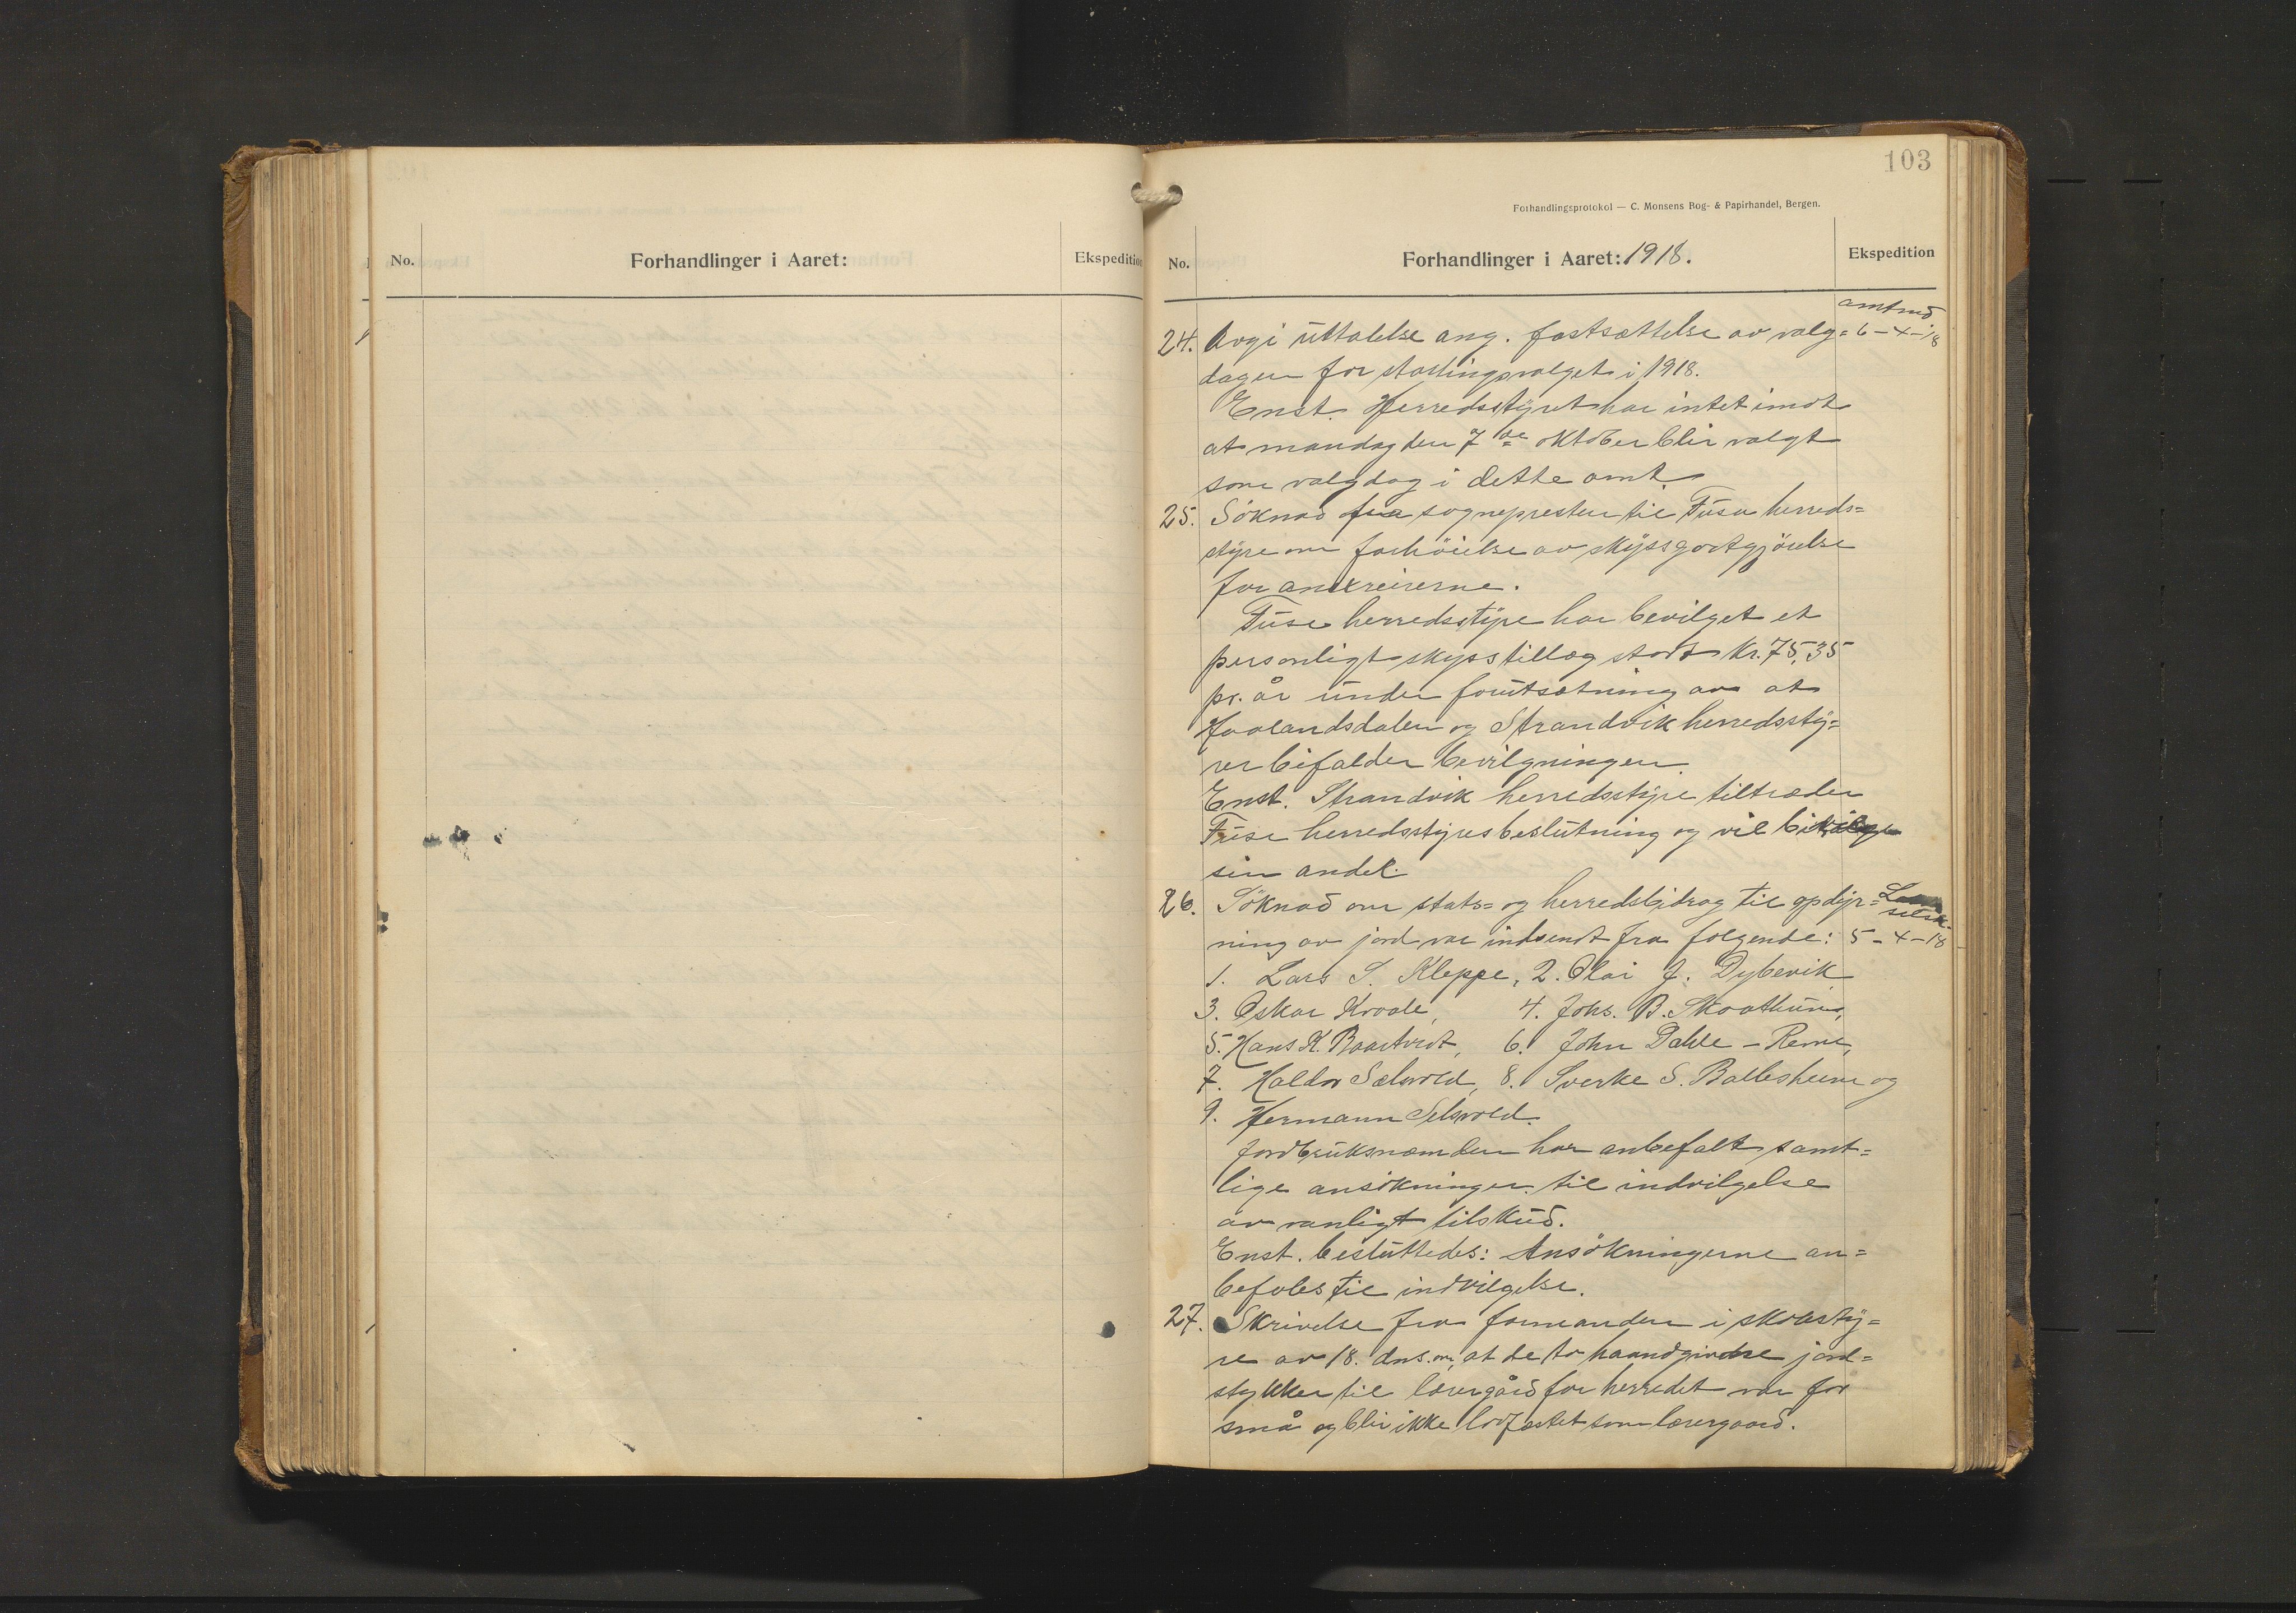 No.
Forhandlinger i Aaret:
Ekspedition
103
Forhandlingsprotokol — C. Monsens Bog- & Papirhandel, Bergen.
No.
Forhandlinger i Aaret: 1918.
Ekspedition
amtmd
24. Avgi uttalelse ang. fastsættelse av valg= 6-4-18
dagen for stortingsvalget i 1918.
Enst. Herredsstyret har intet imot
at mandag den 7de oktober blir valgt
som valgdag i dette amt.
25. Söknad fra sognepresten til Fusa herreds=
styre om forhöielse av skyssgodtgjörelse
for annexreiserne.
Fuse herredsstyre har bevilget et
personligt skysstillæg stort kr. 75,35
pr. år under forutsætning av at
Haalandsdalen og Strandvik herredssty=
rer bifalder bevilgningen.
Enst. Strandvik herredsstyre tiltræder
Fuse herredsstyres beslutning og vil bevilge
sin andel.
26. Söknad om stats= og herredsbidrag til opdyr=
ning av jord var indsendt fra følgende: 5-4-18
1. Lars S. Kleppe, 2. Olai J. Dybevik
3. Oskar Kvale, 4. Johs. B. Skaathun,
5. Hans K. Baartvedt, 6. John Dahle - Reme,
7. Haldor Sælsvold, 8. Sverke S. Ballesheim og
9. Hermann Selsvold.
Jordbruksnæmden har anbefalt samt=
lige ansökninger til indvilgelse
av vanligt tilskud.
Enst. besluttedes: Ansökningerne an=
befales til indvilgelse.
27. Skrivelse fra formanden i skolesty=
re av 18. dns. om, at de to haandgivne jord=
stykker til lærergård for herredet var for
små og blir ikke lovfæstet som lærergaard.